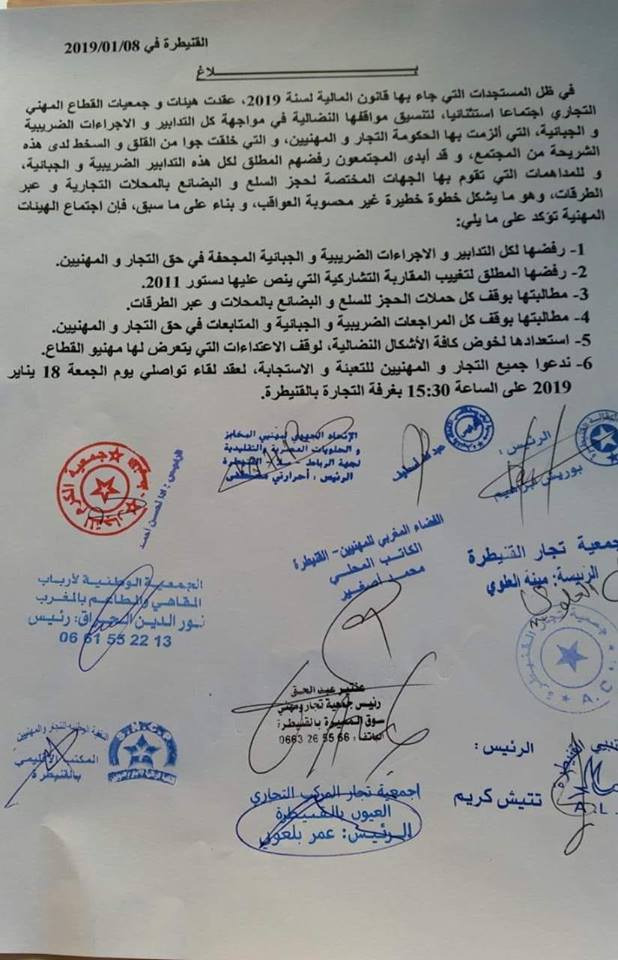 القنيطرة في 2019/01/08
بــــــــــــــــــــــــــــــلاغ
في ظل المستجدات التي جاء بها قانون المالية لسنة 2019، عقدت هيئات و جمعيات القطاع المهني
التجاري اجتماعا استثنائيا، لتنسيق مواقفها النضالية في مواجهة كل التدابير و الاجراءات الضريبية
و الجبائية، التي ألزمت بها الحكومة التجار و المهنيين، و التي خلقت جوا من القلق و السخط لدى هذه
الشريحة من المجتمع، و قد أبدى المجتمعون رفضهم المطلق لكل هذه التدابير الضريبية و الجبائية،
و للمداهمات التي تقوم بها الجهات المختصة لحجز السلع و البضائع بالمحلات التجارية و عبر
الطرقات، وهو ما يشكل خطوة خطيرة غير محسوبة العواقب، و بناء على ما سبق، فإن اجتماع الهيئات
المهنية تؤكد على ما يلي:
1- رفضها لكل التدابير و الاجراءات الضريبية و الجبائية المجحفة في حق التجار و المهنيين.
2- رفضها المطلق لتغييب المقاربة التشاركية التي ينص عليها دستور 2011.
3- مطالبتها بوقف كل حملات الحجز للسلع و البضائع بالمحلات و عبر الطرقات.
4- مطالبتها بوقف كل المراجعات الضريبية و الجبائية و المتابعات في حق التجار و المهنيين.
5- استعدادها لخوض كافة الأشكال النضالية، لوقف الاعتداءات التي يتعرض لها مهنيو القطاع.
6- ندعوا جميع التجار و المهنيين للتعبئة و الاستجابة، لعقد لقاء تواصلي يوم الجمعة 18 يناير
2019 على الساعة 15:30 بغرفة التجارة بالقنيطرة.
الرئيس:
بوريش ابراهيم
الإتحاد الجهوي لمهنيي المخابز
و الحلويات العصرية والتقليدية
لجهة الرباط
الرئيس: أحرارني مصطفى
جمعية الكرم للتجار
جمعية تجار القنيطرة
الرئيسة: مينة العلوي
الفضاء المغربي للمهنيين - القنيطرة
الكاتب المحلي
محمد أصغير
الجمعية الوطنية لأرباب
المقاهي والمطاعم بالمغرب
نور الدين الحراق: رئيس
06 61 55 22 13
عبد الحق
رئيس جمعية تجار ومهني
سوق المسيرة بالقنيطرة
الهاتف: 0663 26 55 66
المكتب الاقليمي
بالقنيطرة
الرئيس:
تتيش كريم
جمعية تجار المركب التجاري
العيون بالقنيطرة
الرئيس: عمر بلعوني